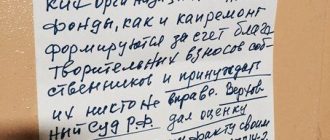 фонды, как и капремонт
формируются за счет благо
творительных взносов соб-
ственников и принуждат
их никто не вправе. Верхов-
ный Суд РФ дал оценку
своим